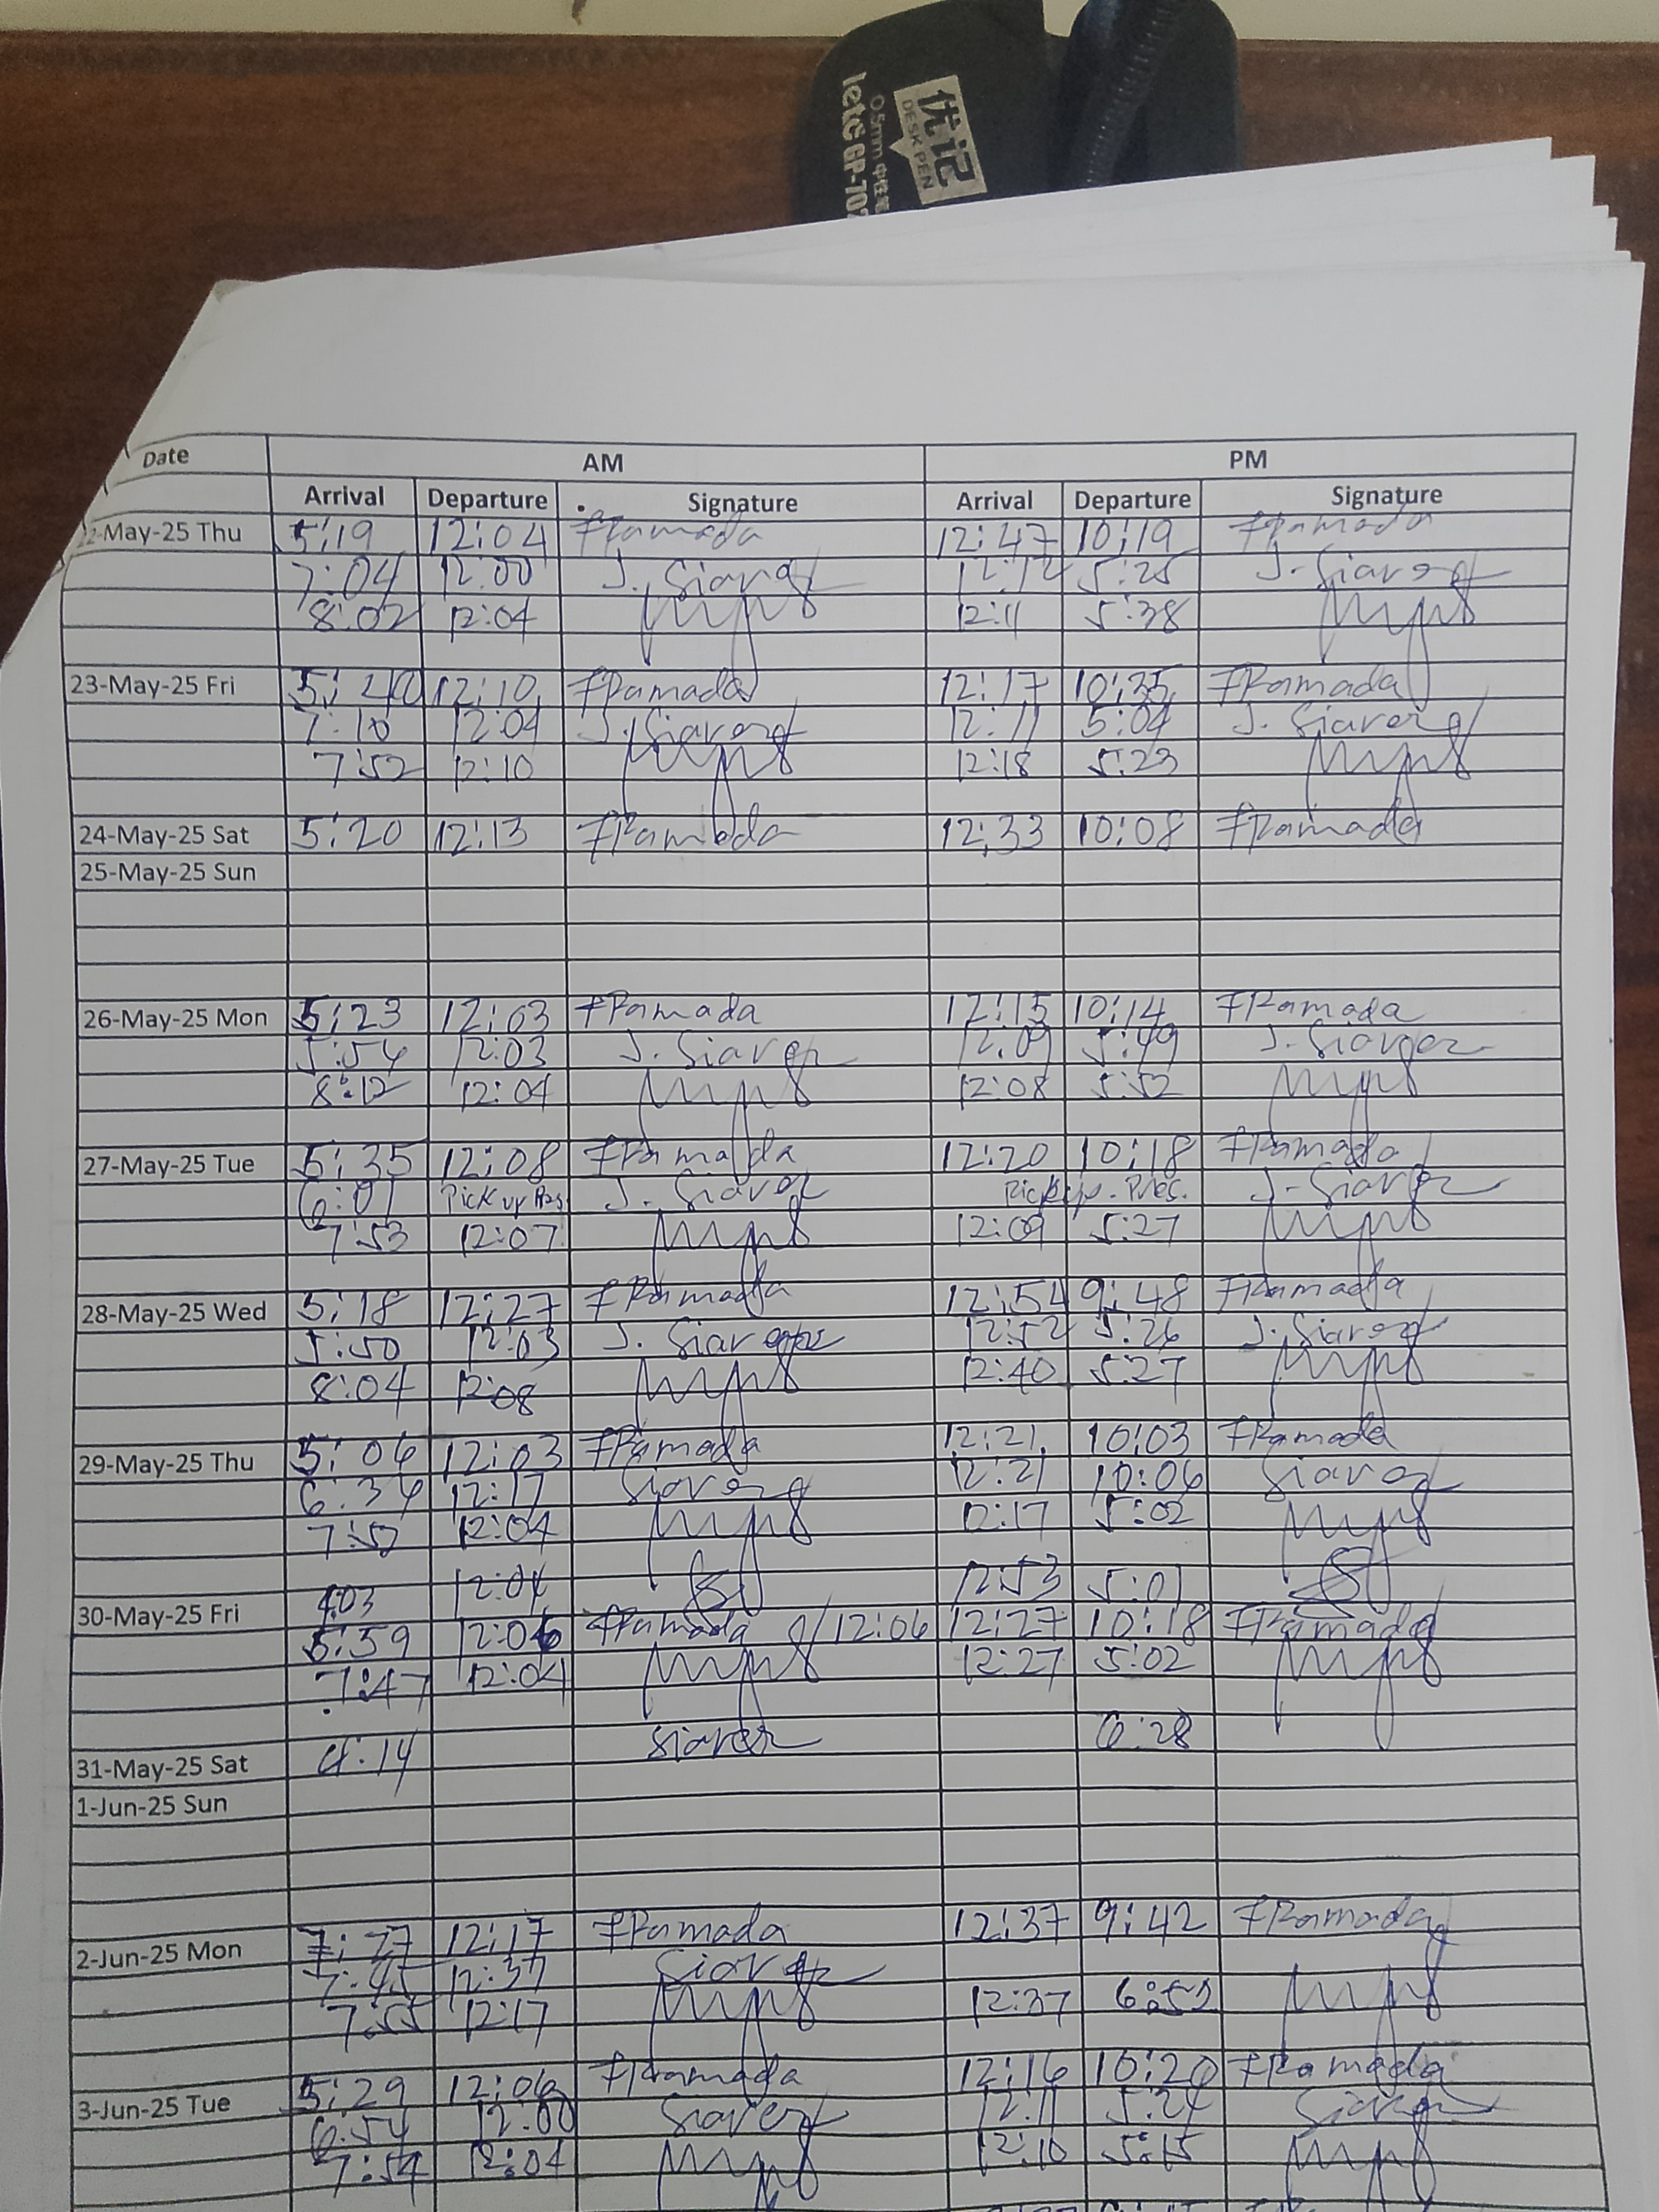 优记
DESK PEN
0.5mm
letc GP-702
Date AM PM
Arrival Departure Signature Arrival Departure Signature
-May-25 Thu 5:19 12:04 FRamada 12:47 10:19 FRamada
7:04 12:00 J. Siarez 12:12 5:25 J. Siarez
8:02 12:04 12:11 5:38
23-May-25 Fri 5:40 12:10 FRamada 12:17 10:35 FRamada
7:10 12:04 J. Siarez 12:11 5:04 J. Siarez
7:52 12:10 12:18 5:23
24-May-25 Sat 5:20 12:13 FRamada 12:33 10:08 FRamada
25-May-25 Sun
26-May-25 Mon 5:23 12:03 FRamada 12:15 10:14 FRamada
5:54 12:03 J. Siarez 12:09 5:49 J. Siarez
8:12 12:04 12:08 5:52
27-May-25 Tue 5:35 12:08 FRamada 12:20 10:18 FRamada
6:01 Pick up Pres. J. Siarez Pick up. Pres. J. Siarez
7:53 12:07 12:09 5:27
28-May-25 Wed 5:18 12:27 FRamada 12:54 9:48 FRamada
5:50 12:03 J. Siarez 12:52 5:26 J. Siarez
8:04 12:08 12:40 5:27
29-May-25 Thu 5:06 12:03 FRamada 12:21 10:03 FRamada
6:34 12:17 Siarez 12:21 10:06 Siarez
7:52 12:04 12:17 5:02
12:04 12:53 5:01
30-May-25 Fri 5:59 12:06 FRamada 12:06 12:27 10:18 FRamada
7:47 12:04 12:27 5:02
Siarez 6:28
31-May-25 Sat 4:14
1-Jun-25 Sun
2-Jun-25 Mon 7:27 12:17 FRamada 12:37 9:42 FRamada
7:45 12:37 Siarez
7:55 12:17 12:37 6:52
3-Jun-25 Tue 5:29 12:06 FRamada 12:16 10:20 FRamada
6:54 12:00 Siarez 12:11 5:24 Siarez
7:54 12:04 12:10 5:15